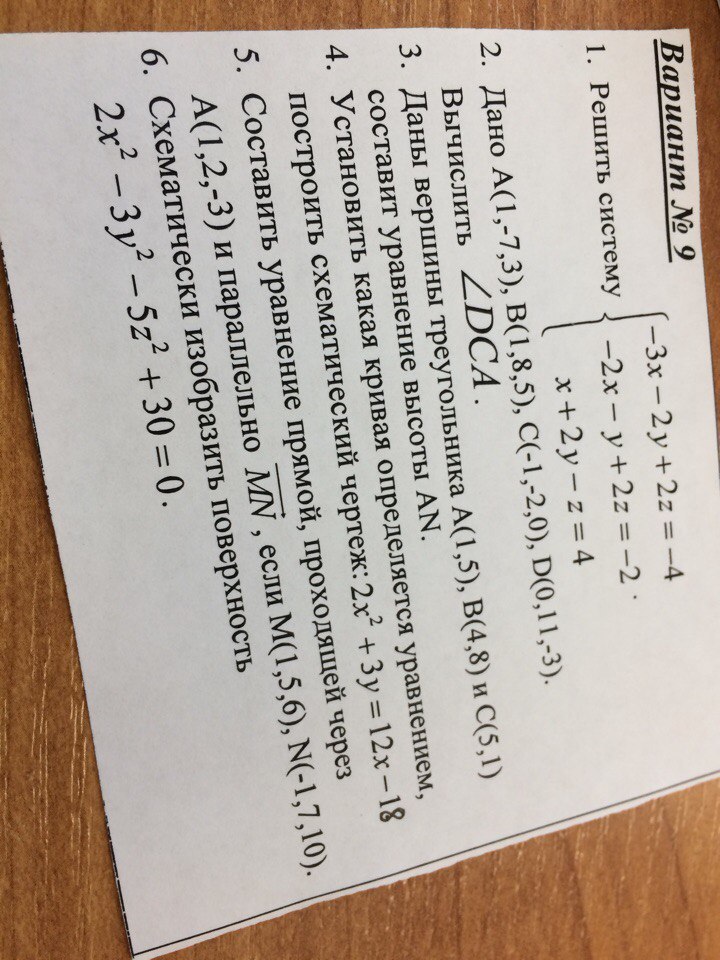 Вариант № 9
1. Решить систему { −3x − 2y + 2z = −4
−2x − y + 2z = −2 .
x + 2y − z = 4
2. Дано A(1,-7,3), B(1,8,5), C(-1,-2,0), D(0,11,-3).
Вычислить ∠DCA .
3. Даны вершины треугольника A(1,5), B(4,8) и C(5,1)
составит уравнение высоты AN.
4. Установить какая кривая определяется уравнением,
построить схематический чертеж: 2x² + 3y = 12x − 18
5. Составить уравнение прямой, проходящей через
A(1,2,-3) и параллельно MN , если M(1,5,6), N(-1,7,10).
6. Схематически изобразить поверхность
2x² − 3y² − 5z² + 30 = 0 .